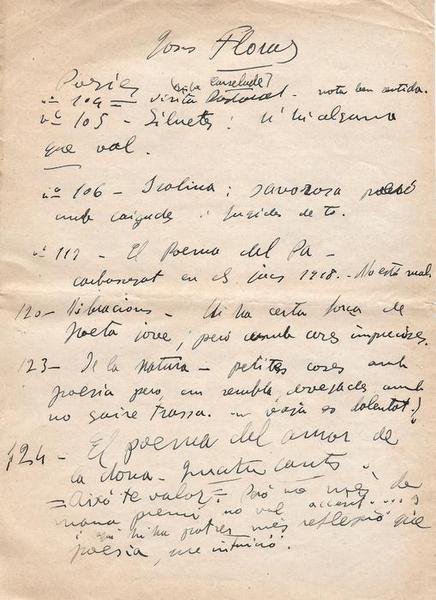 Jocs Florals
Poesies
nº 104 = visita Pastoral - nota ben sentida.
nº 105 - Siluetes: n'hi ha alguna
que val.
nº 106 - Isolina: saborosa però
amb caigudes i de to.
nº 112 - El Poema del Pa -
en els jocs 1918. - No està mal
120 - Vibracions - Hi ha certa força de
poeta jove; però amb coses imprecises.
123 - De la Natura - petites coses amb
poesia però, em sembla, amb
no gaire traça.
124 - El poema del amor de
la dona - quatre cants.
= Això té valor = Però no més de
, no val accent
i aquí hi ha potser més reflexió que
poesia, que intuició.